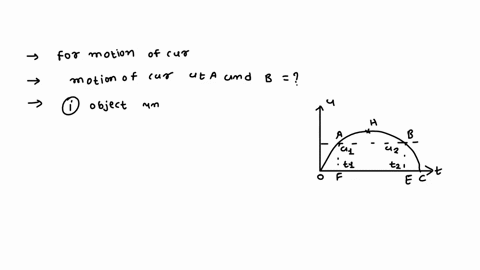 → for motion of cur
→ motion of cur at A and B = ?
→ i object un
u
H
A B
u1 u2
t1 t2
O F E C t